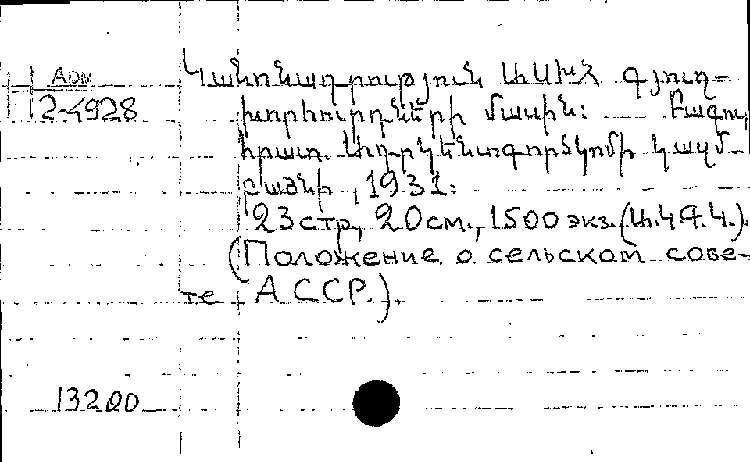 Арм
2-4928
Կանոնադրություն ԱՍԽՀ գյուղ-
խորհուրդների մասին: Բագու,
հրատ. Ադրկենտգործկոմի կազմ-
բաժնի, 1931:
23 стр, 20 см., 1500 экз. (Ա.Կ.Գ.Կ.).
(Положение о сельском сове-
те АССР.).
13200